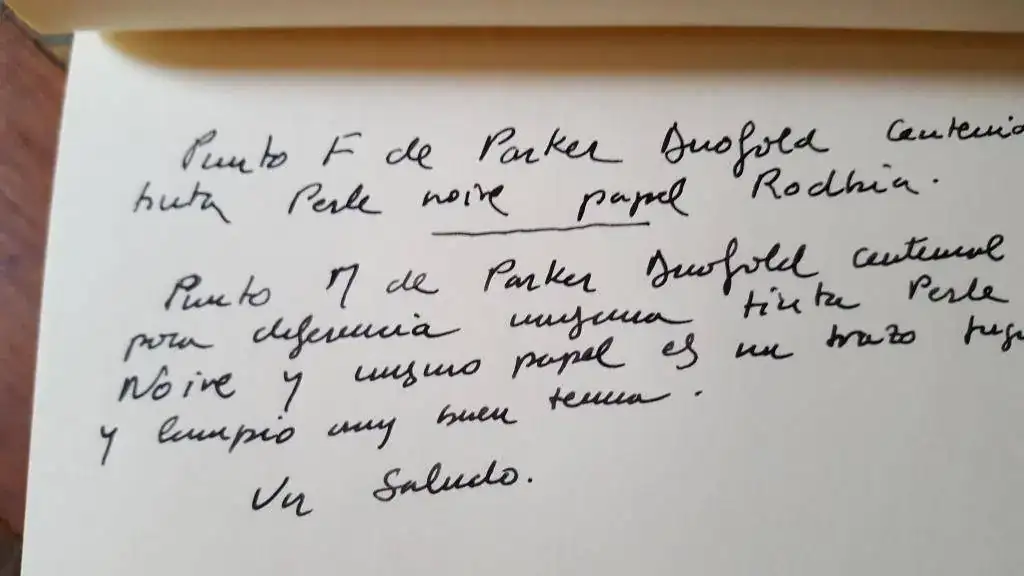 Punto F de Parker Duofold centenia
tinta Perle noire papel Rodhia.
Punto M de Parker Duofold centenial
poca diferencia misma tinta Perle
Noire y mismo papel es un trazo
y limpio muy buen tema.
Un Saludo.